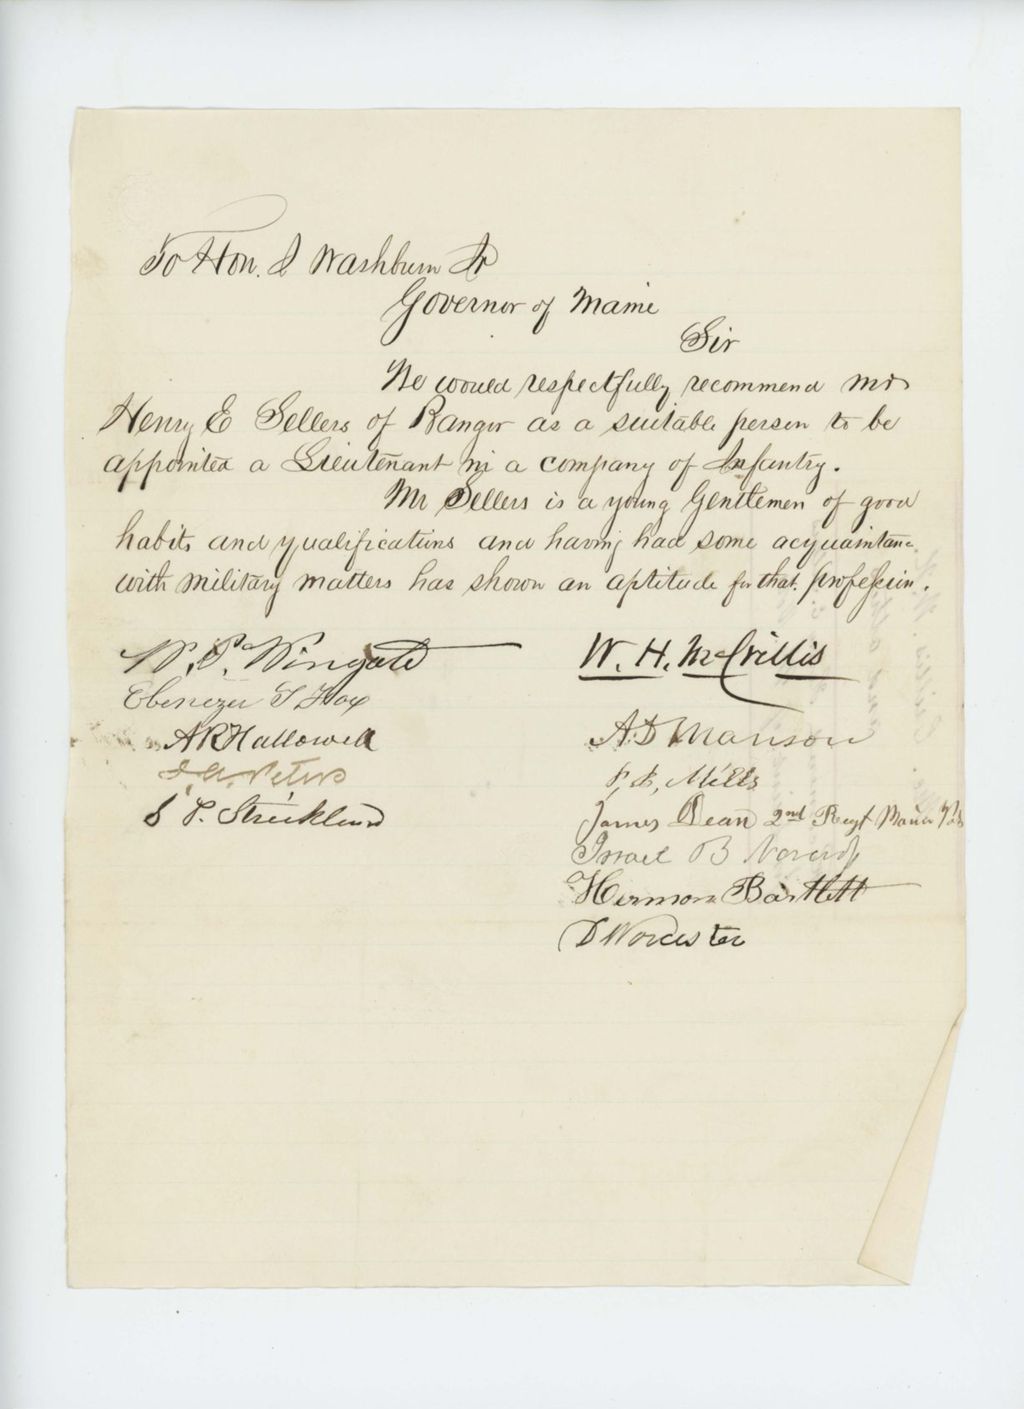 To Hon. I Washburn Jr
Governor of Maine
Sir
We would respectfully recommend Mr
Henry E Sellers of Bangor as a suitable person to be
appointed a Lieutenant in a company of Infantry.
Mr Sellers is a young Gentlemen of good
habits and qualifications and having had some acquaintance
with military matters has shown an aptitude for that profession.
W. P. Wingate
W. H. McCrillis
Ebenezer T Fox
A R Hallowell
A D Manson
J. A. Peters
P. B. Mills
S P. Strickland
James Dean 2nd Regt Maine Vols
Israel B Norcross
Hermon Bartlett
D Worcester